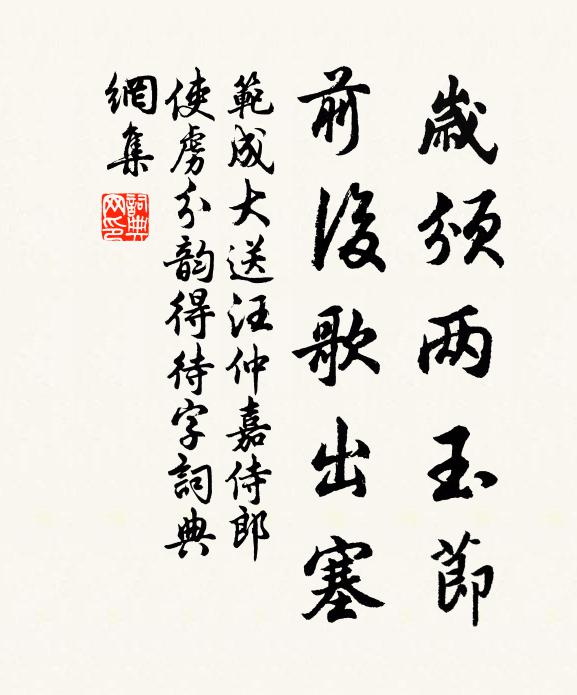 歲頒兩玉節
前後歌出塞
範成大送汪仲嘉侍郎
使虜分韵得待字詞典
網集
詞典网印